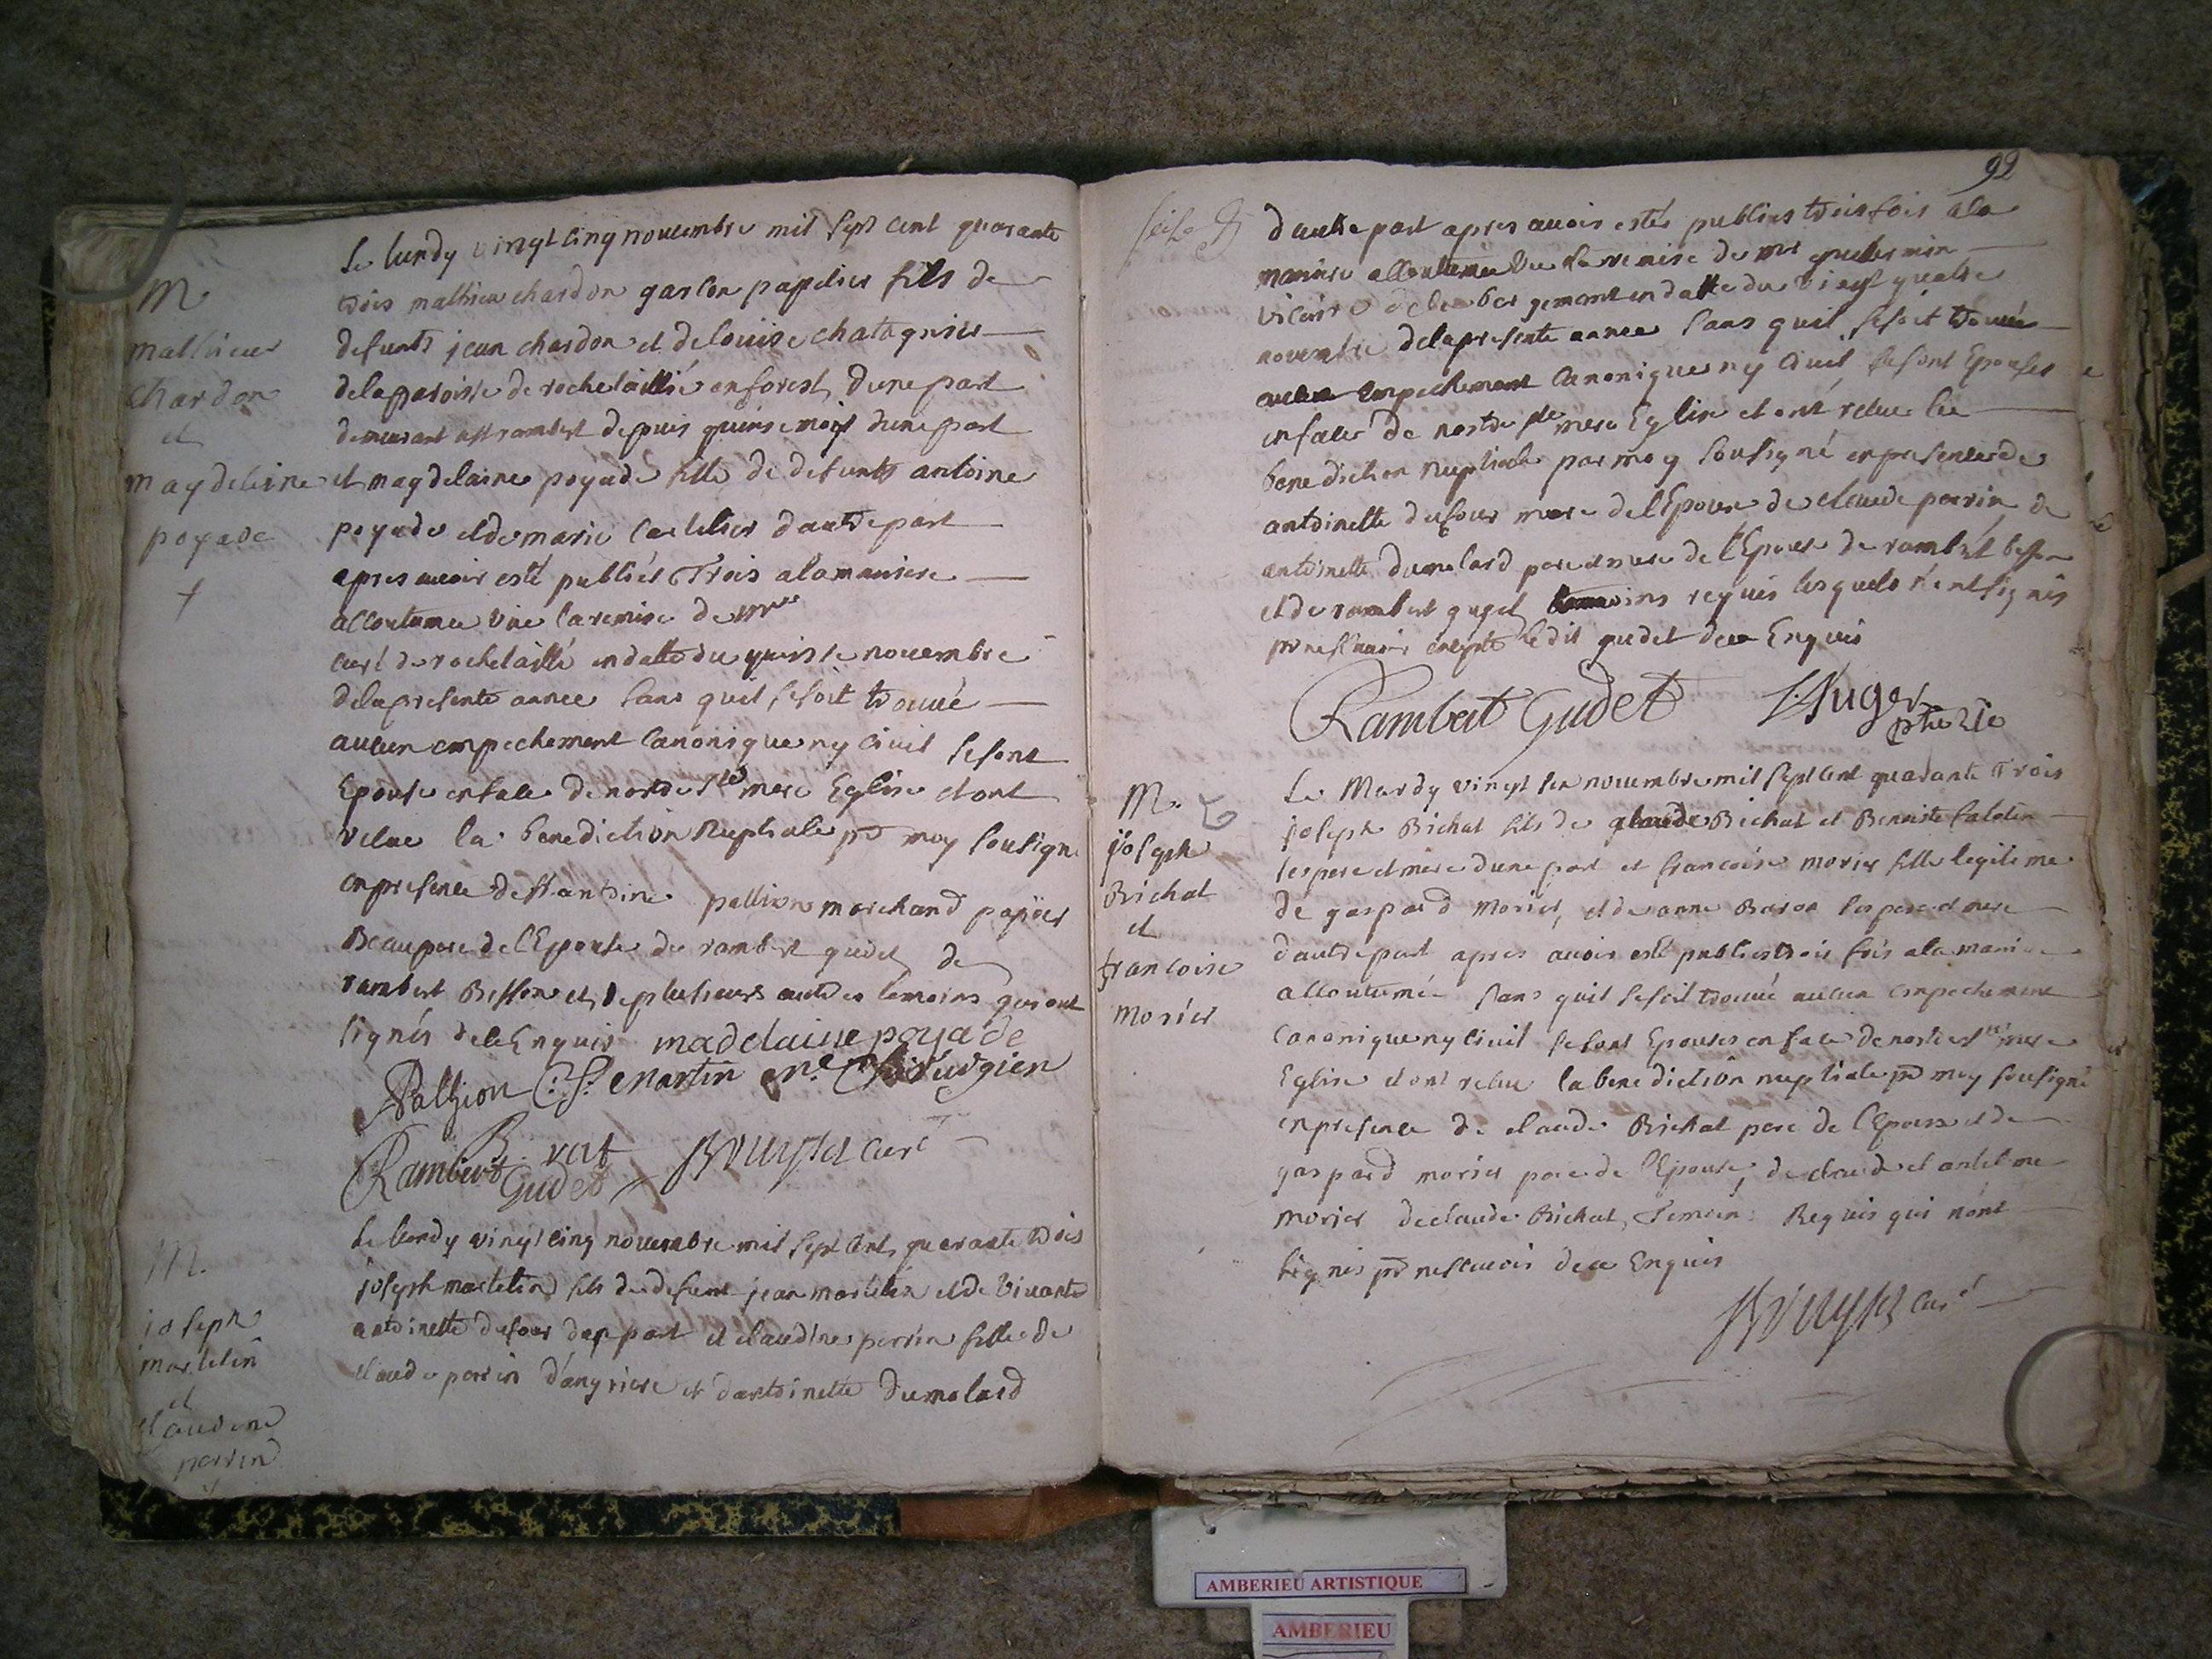 M
mathieu
chardon
et
magdeleine
poyade
Le lundy vingt cinq novembre mil sept cent quarante
trois mathieu chardon garson papetier fils de
defunts jean chardon et de louise chatagnier
de la paroisse de rochetaillié en forest d'une part
demeurant a st rambert depuis quinse mois d'une part
et magdelaine poyade fille de defunts antoine
poyade et de marie d'autre part
apres avoir esté publiés Trois a la maniere
accoutumee vue la remise de mre
curé de rochetaillé en datte du quinse novembre
de la presente annee sans quil se soit trouvé
aucun empechement canonique ny civil se sont
Epouse en face de nostre ste mere Eglise et ont
recue la benediction Nuptiale pr moy sousigné
en presence de st antoine pallion marchand papier
Beaupere de l'Epouse de rambert gudet de
rambert Besson et de plusieurs autres temoins qui ont
signés de ce Enquis madelaine poyade
Pallion C: S: Martin me Chirurgien
Rambert Gudet curé
M.
joseph
martelin
et
claudine
perrin
Le lundy vingt cinq novembre mil sept cent quarante trois
joseph martelin fils de defunt jean martelin et de vivante
antoinette dufour d'une part et claudine perrin fille de
claude perrin d'angriere et d'antoinette dumolard
92
d'autre part apres avoir estés publiés trois fois a la
maniere accoutumée vue la remise de mr
vicaire de en datte du vingt quatre
novembre de la presente annee sans quil se soit trouvé
aucun empechement canonique ny civil se sont Epouses
en face de nostre ste mere Eglise et ont recue la
benediction Nuptiale par moy sousigné en presence de
antoinette dufour mere de l'Epoux de claude perrin de
antoinette dumolard pere et mere de l'Epouse de rambert besson
et de rambert gudet temoins requis lesquels n'ont signés
pr ne scavoir excepté ledit gudet de ce Enquis
Rambert Gudet Auger ptre
M.
joseph
Brichat
et
francoise
morier
Le Mardy vingt six novembre mil sept cent quarante Trois
joseph Brichat fils de claude Brichat et Benoiste
ses pere et mere d'une part et francoise morier fille legitime
de gaspard morier, et de anne Baron ses pere et mere
d'autre part apres avoir esté publiés trois fois a la maniere
accoutumée sans quil se soit trouvé aucun empechement
canonique ny civil se sont Epousés en face de nostre ste mere
Eglise et ont recue la benediction nuptiale pr moy sousigné
en presence de claude Brichat pere de l'Epoux et de
gaspard morier pere de l'Epouse, de claude et antelme
morier de claude Brichat, Temoins Requis qui n'ont
signés pr ne scavoir de ce Enquis
curé
AMBERIEU ARTISTIQUE
AMBERIEU